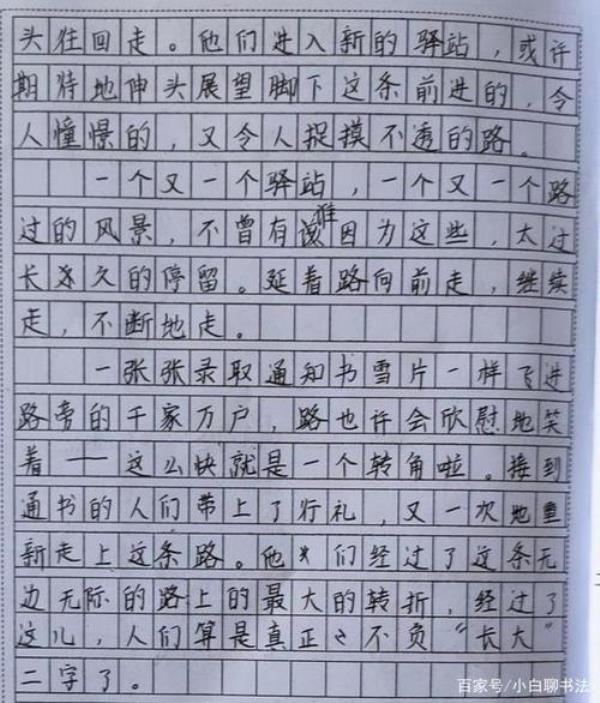 头往回走。他们进入新的驿站，或许
期待地伸头展望脚下这条前进的，令
人憧憬的，又令人捉摸不透的路。
一个又一个驿站，一个又一个路
过的风景，不曾有谁因为这些，太过
长永久的停留。延着路向前走，继续
走，不断地走。
一张张录取通知书雪片一样飞进
路旁的千家万户，路也许会欣慰地笑
着——这么快就是一个转角啦。接到
通书的人们带上了行礼，又一次地重
新走上这条路。他们经过了这条无
边无际的路上的最大的转折，经过了
这儿，人们算是真正不负“长大”
二字了。
百家号/小白聊书法